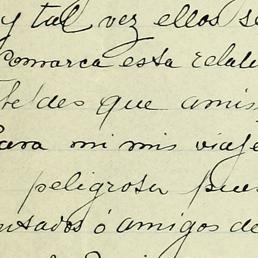 y tal vez ellos se
comarca esta relati
beldes que amis
Para mi mis viaje
peligrosa pues
usados ó amigos de